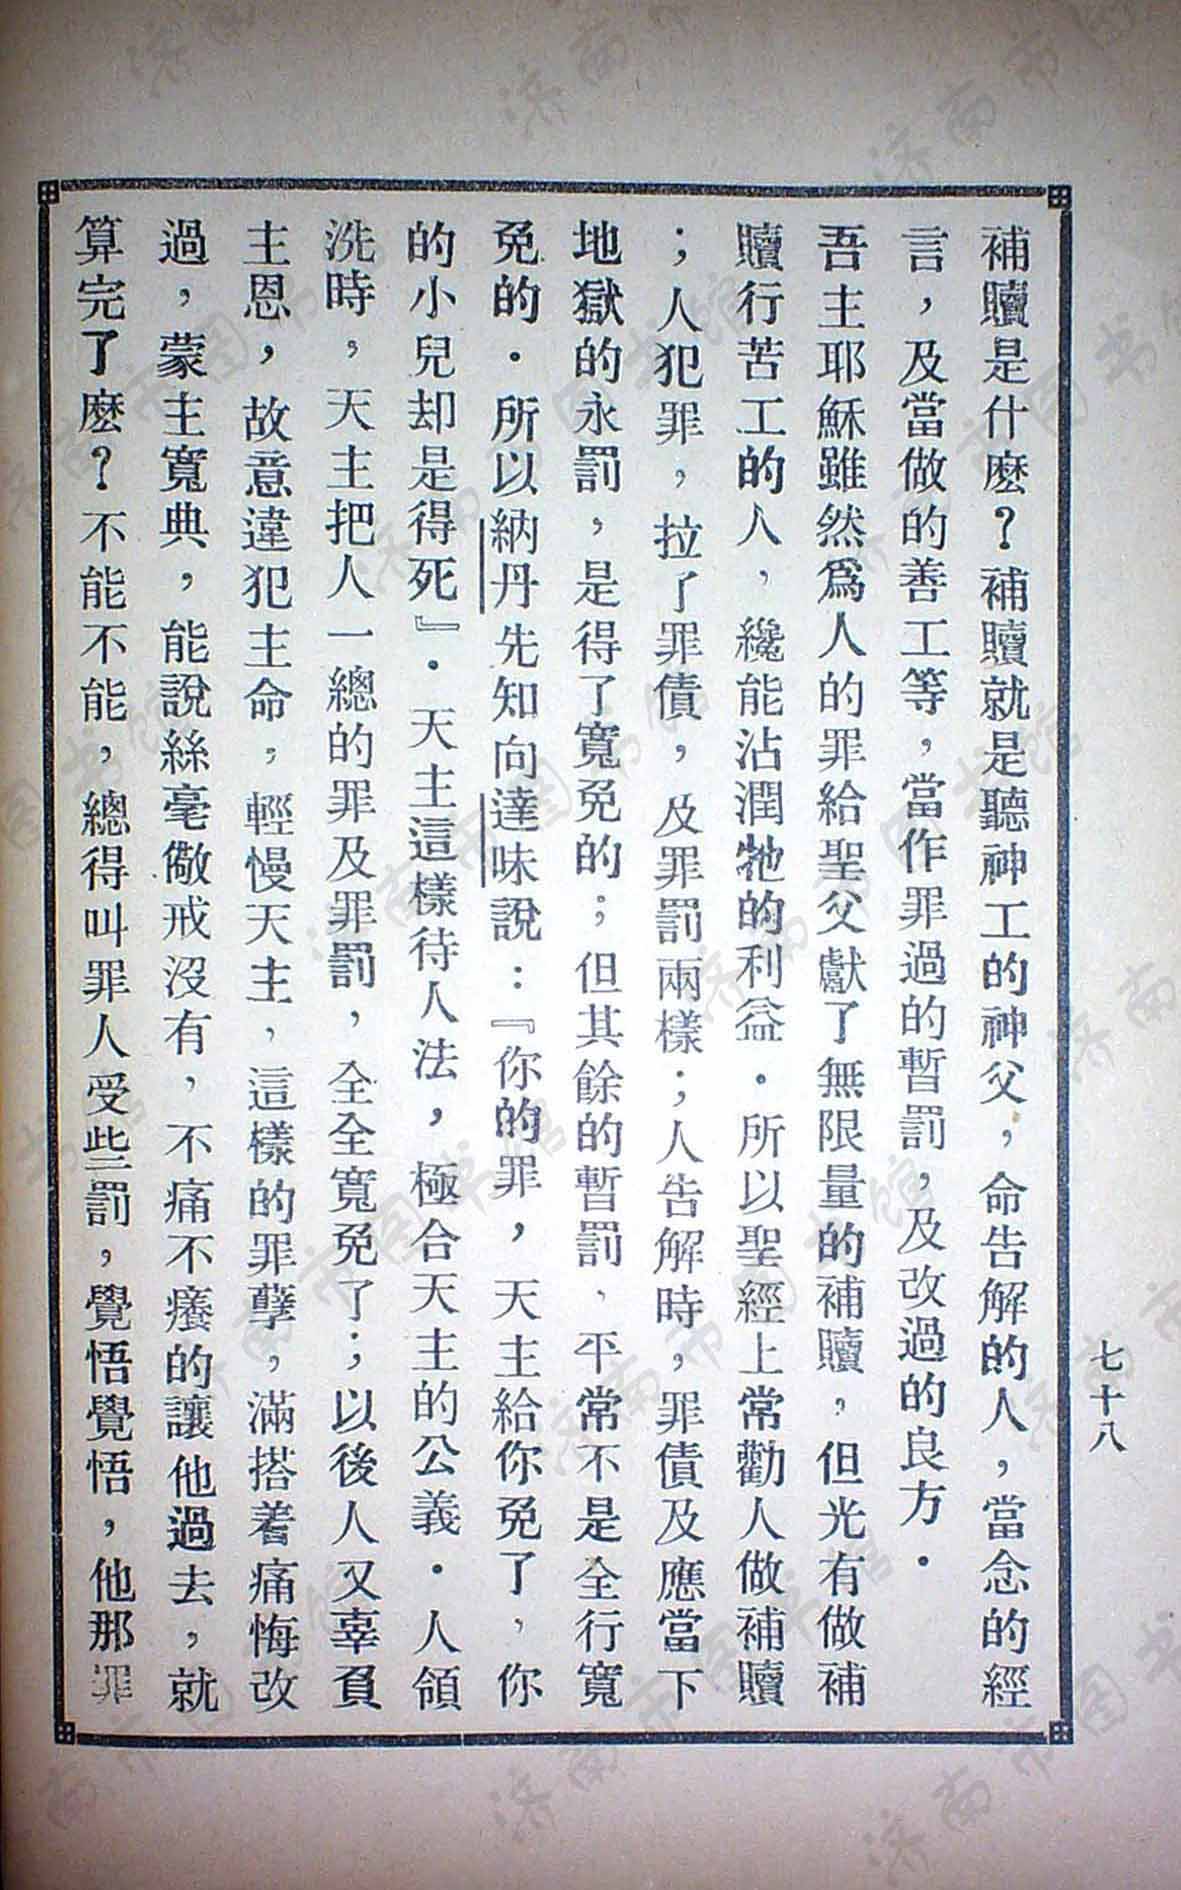 七十八
補贖是什麼？補贖就是聽神工的神父，命告解的人，當念的經
言，及當做的善工等，當作罪過的暫罰，及改過的良方．
吾主耶穌雖然爲人的罪給聖父獻了無限量的補贖，但光有做補
贖行苦工的人，纔能沾潤牠的利益．所以聖經上常勸人做補贖
；人犯罪，拉了罪債，及罪罰兩樣；人告解時，罪債及應當下
地獄的永罰，是得了寬免的；但其餘的暫罰、平常不是全行寬
免的．所以納丹先知向達味說：『你的罪，天主給你免了，你
的小兒却是得死』．天主這樣待人法，極合天主的公義．人領
洗時，天主把人一總的罪及罪罰，全全寬免了；以後人又辜負
主恩，故意違犯主命，輕慢天主，這樣的罪孽，滿搭着痛悔改
過，蒙主寬典，能說絲毫儆戒沒有，不痛不癢的讓他過去，就
算完了麼？不能不能，總得叫罪人受些罰，覺悟覺悟，他那罪
济南市图书馆